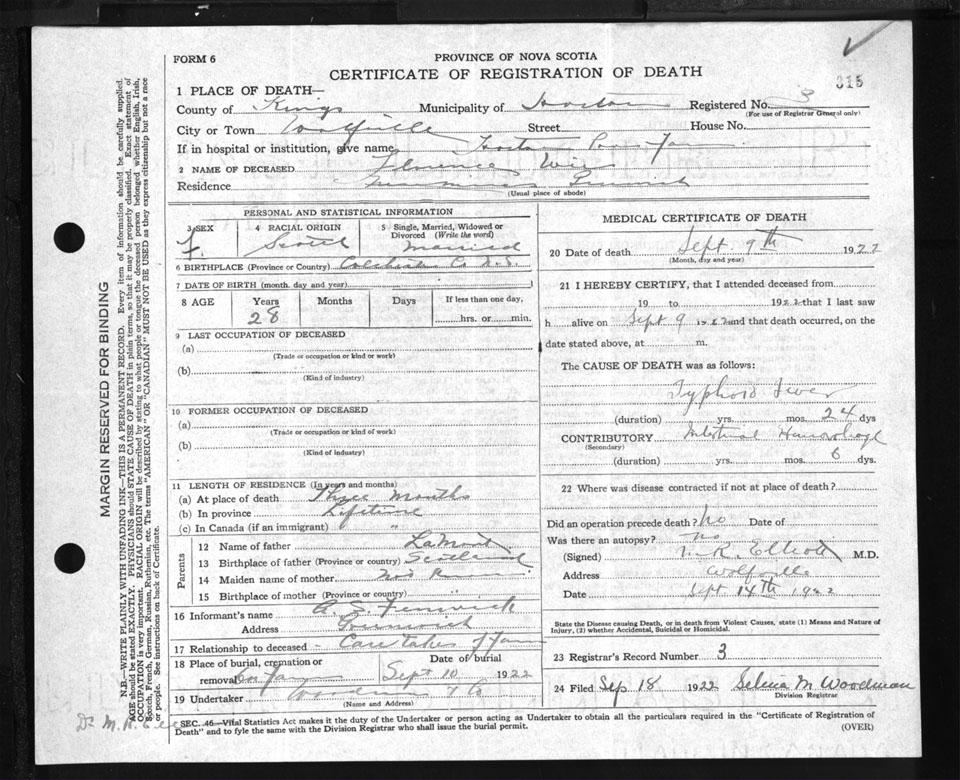 FORM 6
PROVINCE OF NOVA SCOTIA
CERTIFICATE OF REGISTRATION OF DEATH
315
1 PLACE OF DEATH—
County of Kings Municipality of Horton Registered No. 3
(For use of Registrar General only)
City or Town Wolfville Street House No.
If in hospital or institution, give name Horton Poor Farm
2 NAME OF DECEASED Florence
Residence
(Usual place of abode)
PERSONAL AND STATISTICAL INFORMATION
3 SEX f. 4 RACIAL ORIGIN Scotch 5 Single, Married, Widowed or Divorced (Write the word) Married
6 BIRTHPLACE (Province or Country) Colchester Co N.S.
7 DATE OF BIRTH (month, day and year)
8 AGE Years 28 Months Days If less than one day, hrs. or min.
9 LAST OCCUPATION OF DECEASED
(a)
(Trade or occupation or kind or work)
(b)
(Kind of industry)
10 FORMER OCCUPATION OF DECEASED
(a)
(Trade or occupation or kind of work)
(b)
(Kind of industry)
11 LENGTH OF RESIDENCE (In years and months)
(a) At place of death Three Months
(b) In province Lifetime
(c) In Canada (if an immigrant) "
Parents
12 Name of father LaMont
13 Birthplace of father (Province or country) Scotland
14 Maiden name of mother
15 Birthplace of mother (Province or country)
16 Informant's name A. S. Fenwick
Address
17 Relationship to deceased Care taker of farm
18 Place of burial, cremation or removal Date of burial Sept 10 1922
19 Undertaker Woodman & Co
(Name and Address)
MEDICAL CERTIFICATE OF DEATH
20 Date of death Sept. 9th 1922
(Month, day and year)
21 I HEREBY CERTIFY, that I attended deceased from
19 to 1922 that I last saw
h alive on Sept 9 1922 and that death occurred, on the
date stated above, at m.
The CAUSE OF DEATH was as follows:
Typhoid Fever
(duration) yrs. mos. 24 dys
CONTRIBUTORY Intestinal Hemorrhage
(Secondary)
(duration) yrs. mos. 6 dys.
22 Where was disease contracted if not at place of death?
Did an operation precede death? No Date of
Was there an autopsy? No
(Signed) Elliott M.D.
Address Wolfville
Date Sept 14th 1922
State the Disease causing Death, or in death from Violent Causes, state (1) Means and Nature of
Injury, (2) whether Accidental, Suicidal or Homicidal.
23 Registrar's Record Number 3
24 Filed Sep 18 1922 Selma M Woodman
Division Registrar
SEC. 46—Vital Statistics Act makes it the duty of the Undertaker or person acting as Undertaker to obtain all the particulars required in the "Certificate of Registration of
Death" and to fyle the same with the Division Registrar who shall issue the burial permit.
(OVER)
MARGIN RESERVED FOR BINDING
N.B.—WRITE PLAINLY WITH UNFADING INK—THIS IS A PERMANENT RECORD. Every item of information should be carefully supplied.
AGE should be stated EXACTLY. PHYSICIANS should STATE CAUSE OF DEATH in plain terms, so that it may be properly classified. Exact statement of
OCCUPATION is very important. RACIAL ORIGIN will be described by stating to what people or tongue the deceased person belonged whether English, Irish,
Scotch, French, German, Russian, Ruthenian, etc. The terms "AMERICAN" OR "CANADIAN" MUST NOT BE USED as they express citizenship but not a race
or people. See instructions on back of Certificate.